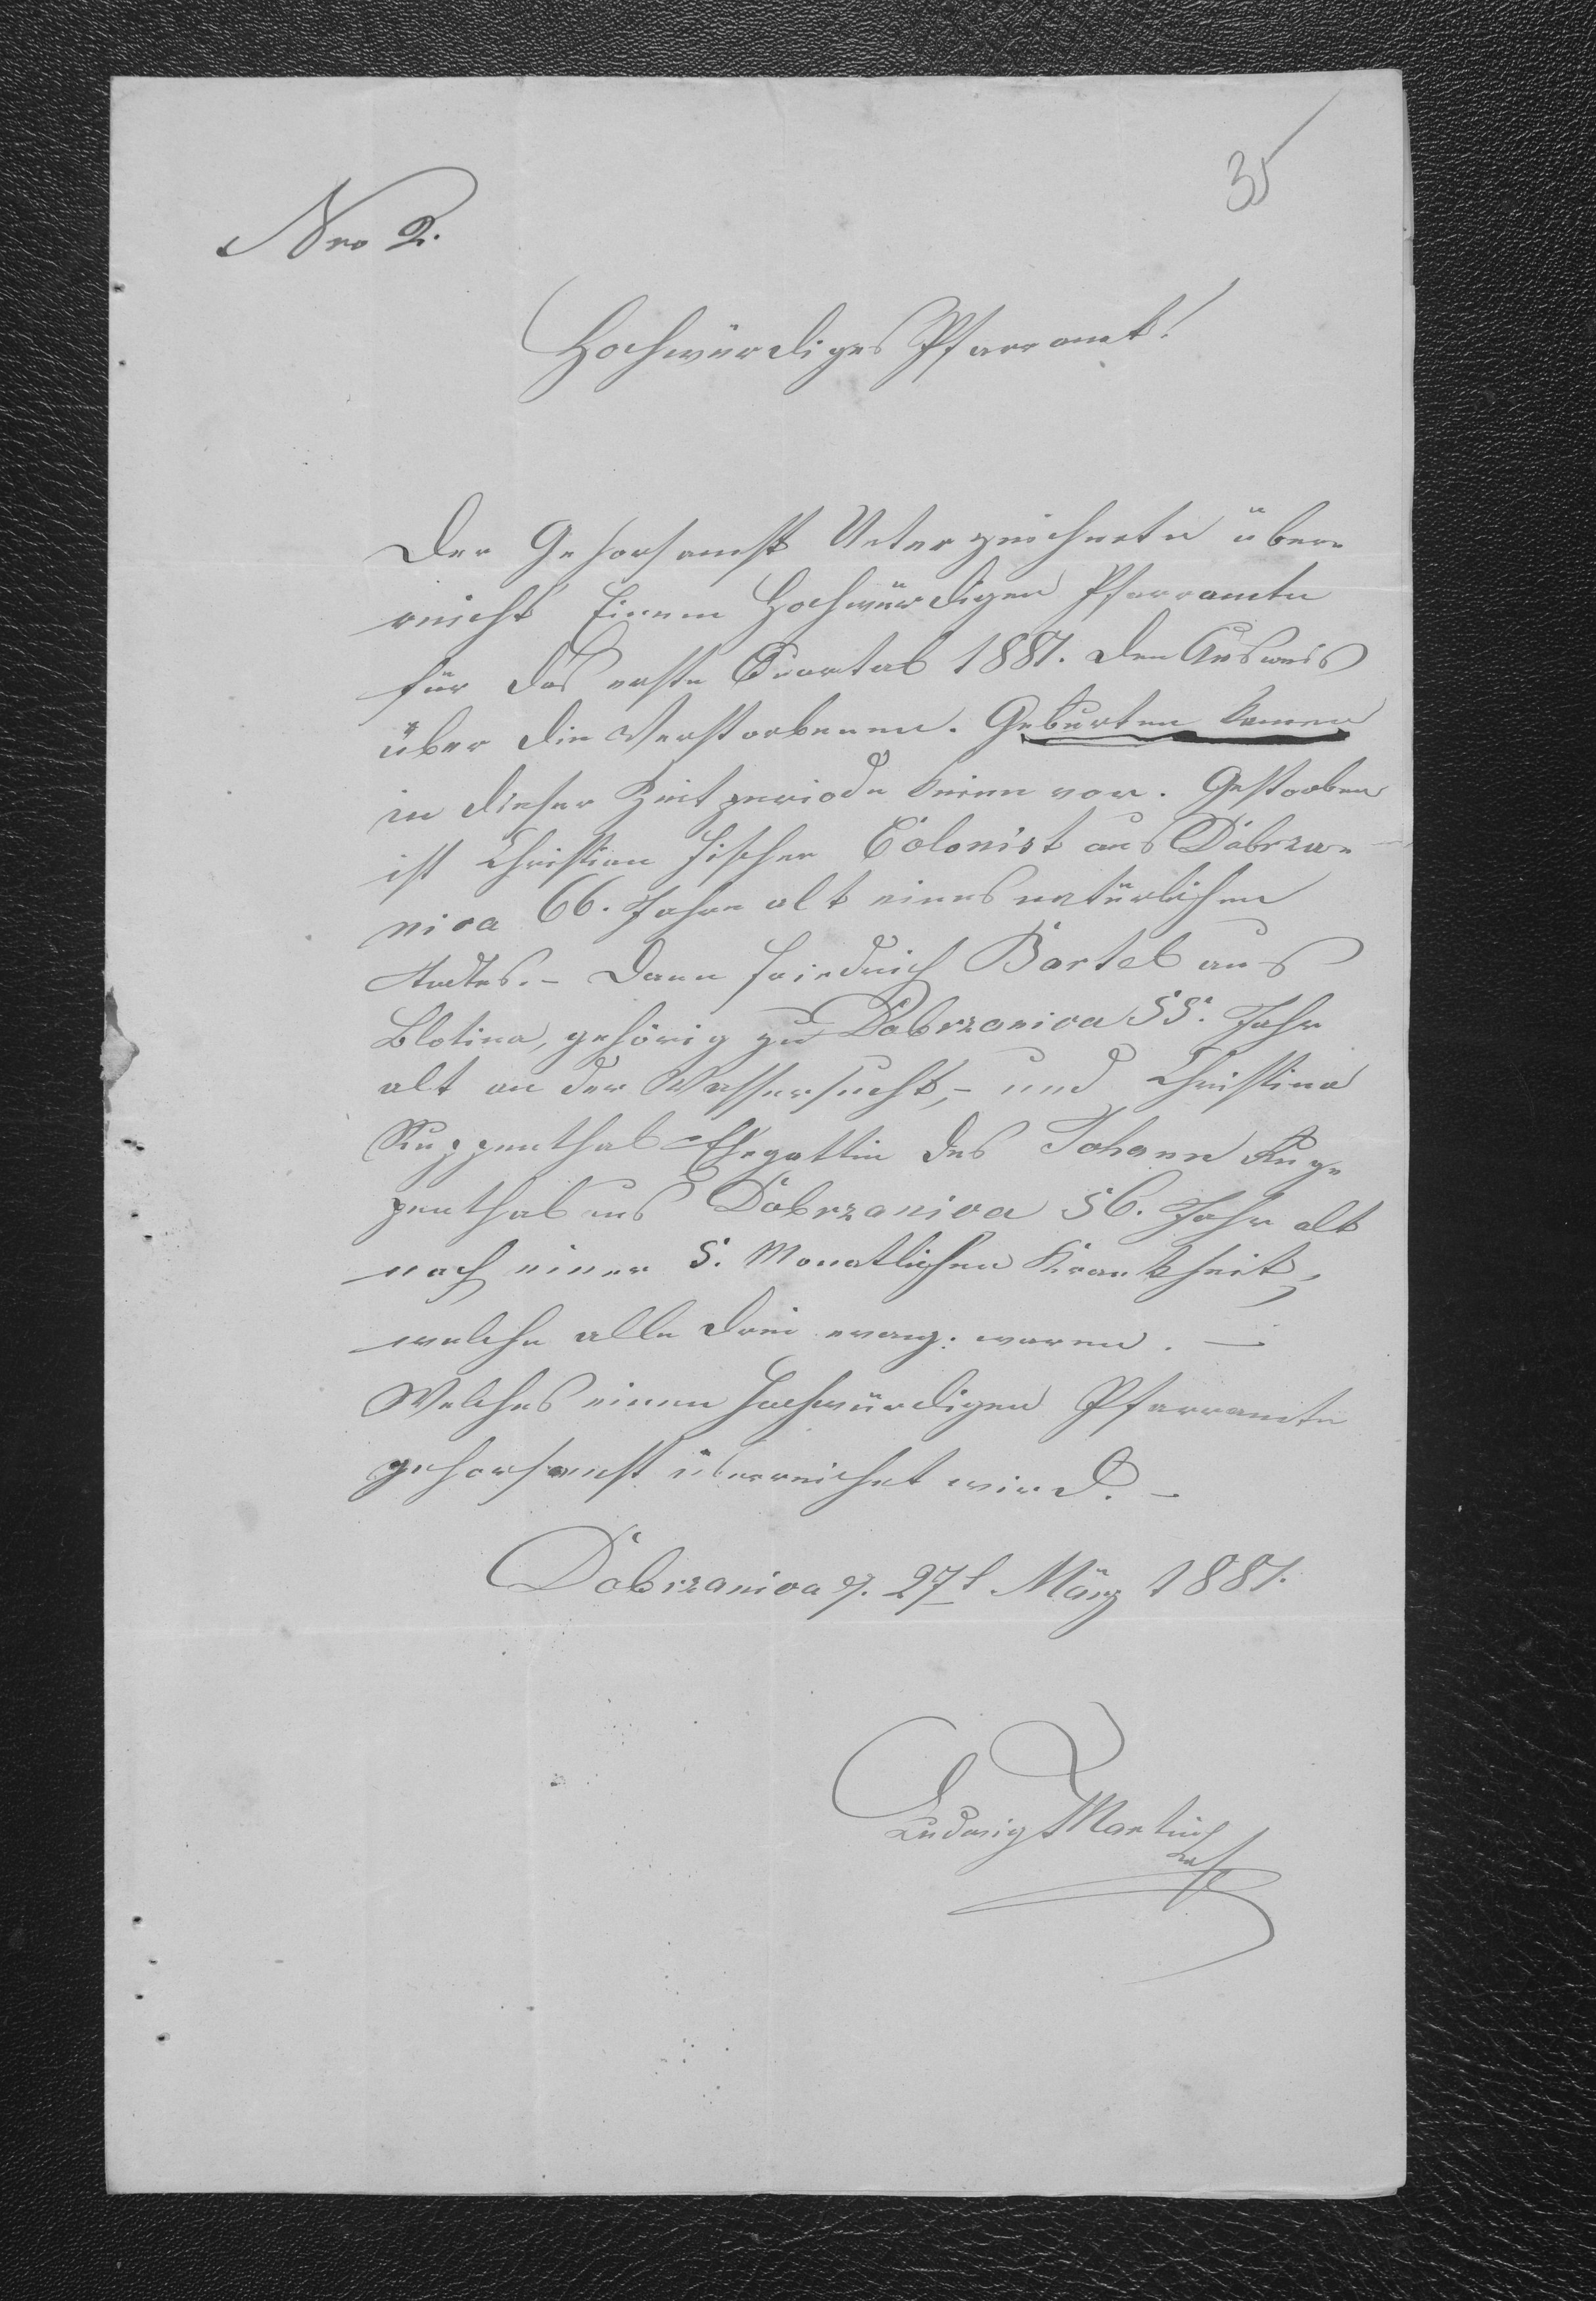 35
Nro 2.
Hochwürdiges Pfarramt!
Der Gehorsamst Unterzeichnete über-
reicht Einem Hochwürdigen Pfarramte
für das erste Quartal 1881. den Ausweis
über die Verstorbenen. Geburten kamen
in dieser Zeitperiode keine vor. Gestorben
ist Christian Fischer Colonist aus Dobrza-
nica 66. Jahre alt eines natürlichen
Todtes. - Dann Friedrich Bartel aus
Blotina, gehörig zu Dobrzanica 55. Jahr
alt an der Wassersucht, - und Christina
Ruppenthal Ehegattin des Johann Rup-
penthal aus Dobrzanica 56. Jahr alt
nach einer 5. Monatlichen Krankheit,
welche alle drei evang: waren. -
Welches einem hochwürdigen Pfarramte
gehorsamst überreichet wird. -
Dobrzanica d. 27t März 1881.
Ludwig Martin